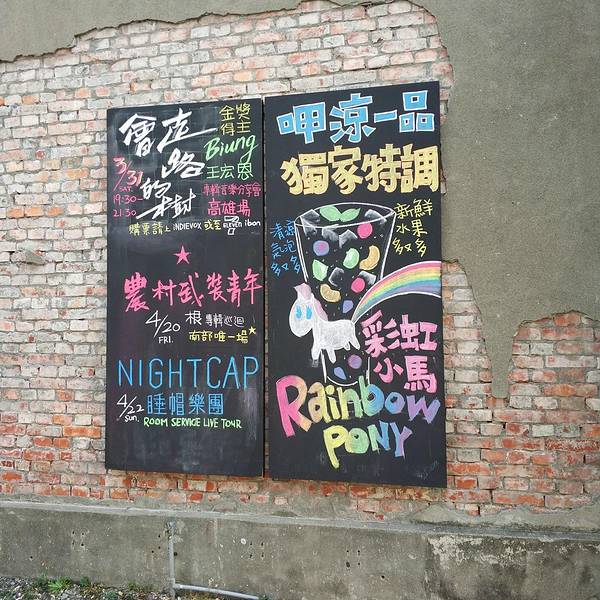 會走路的樹
3/31
SAT.
19:30-
21:30
金獎
得主
Biung
王宏恩
專輯音樂分享會
高雄場
購票請上 INDIEVOX 或至 7 ELEVEN ibon
農村武裝青年
4/20
FRI.
根 專輯巡迴
南部唯一場
NIGHTCAP
4/22
SUN.
睡帽樂團
ROOM SERVICE LIVE TOUR
呷涼一品
獨家特調
清涼
氣泡
多多
新鮮
水果
多多
彩虹
小馬
Rainbow
PONY